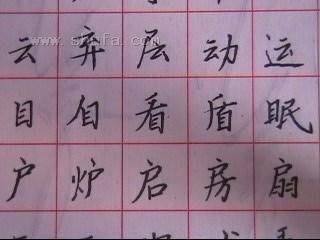 云弃层动运
目自看盾眠
户炉启房扇